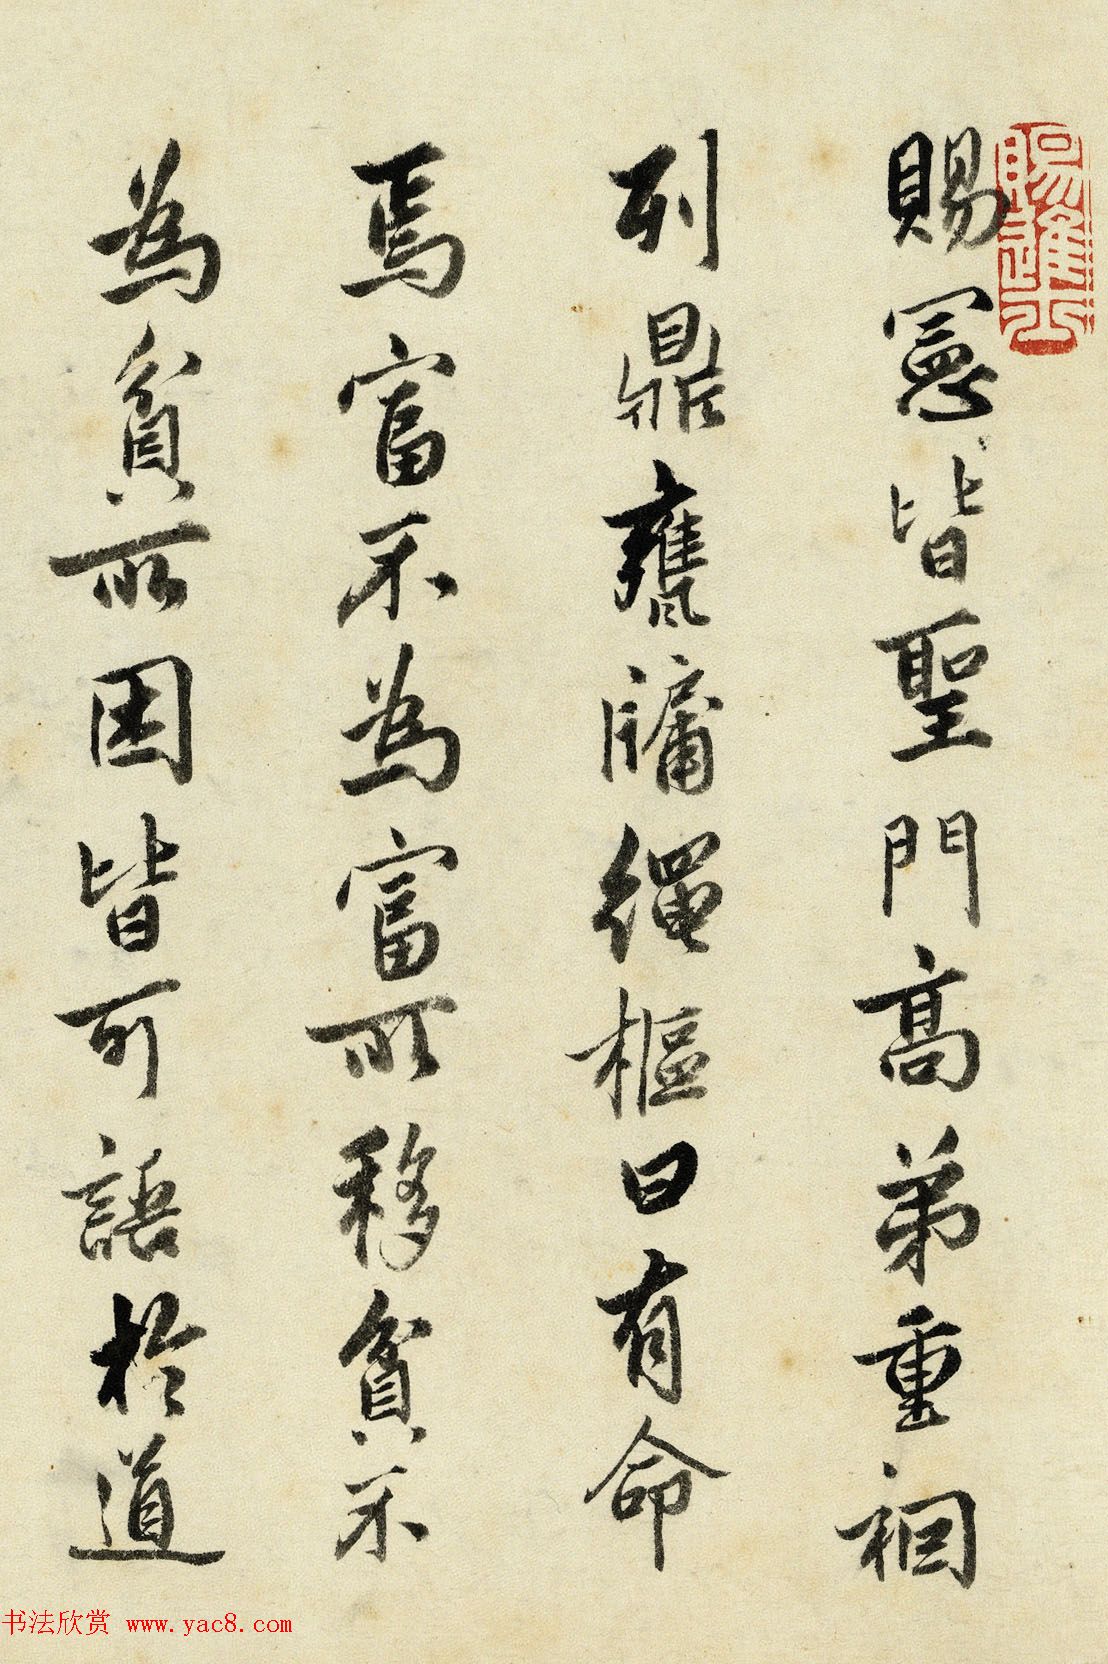 賜憲皆聖門高弟重裀
列鼎甕牖繩樞曰有命
焉富不為富所移貧不
為貧所困皆可語於道
賜進士
书法欣赏 www.yac8.com